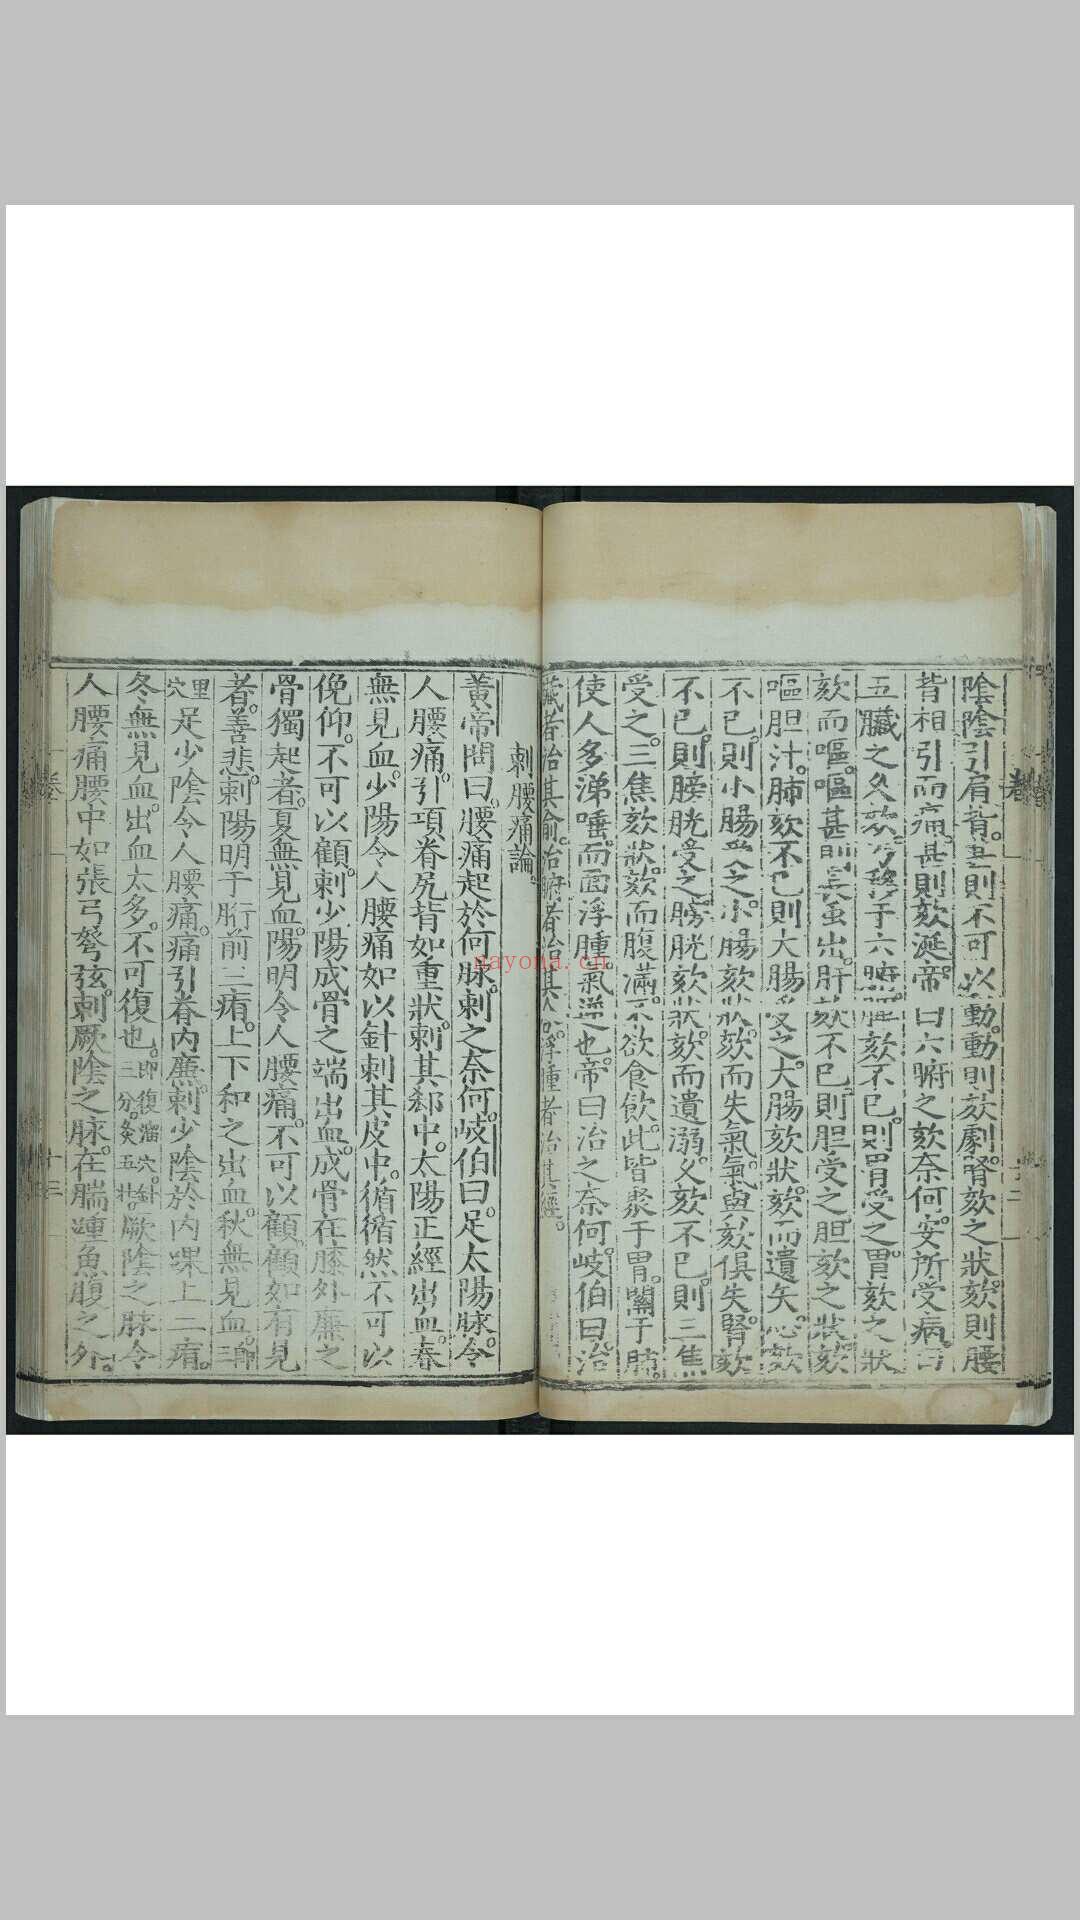 陰陰引肩背甚則不可以動動則欬劇腎欬之狀欬則腰
背相引而痛甚則欬涎帝曰六腑之欬奈何安所受病
五臟之久欬乃移于六腑脾欬不已則胃受之胃欬之狀
欬而嘔嘔甚則長虫出肝欬不已則胆受之胆欬之狀欬
嘔胆汁肺欬不已則大腸受之大腸欬狀欬而遺矢心欬
不已則小腸受之小腸欬狀欬而失氣氣與欬俱失腎欬
不已則膀胱受之膀胱欬狀欬而遺溺久欬不已則三焦
受之三焦欬狀欬而腹滿不欲食飲此皆聚于胃關于肺
使人多涕唾而面浮腫氣逆也帝曰治之奈何岐伯曰治
藏者治其俞治腑者治其合浮腫者治其經
刺腰痛論
黃帝問曰腰痛起於何脉刺之奈何岐伯曰足太陽脉令
人腰痛引項脊尻背如重狀刺其郄中太陽正經出血春
無見血少陽令人腰痛如以針刺其皮中循循然不可以
俛仰不可以顧刺少陽成骨之端出血成骨在膝外廉之
骨獨起者夏無見血陽明令人腰痛不可以顧顧如有見
者善悲刺陽明于胻前三痏上下和之出血秋無見血即三
里穴足少陰令人腰痛痛引脊內廉刺少陰於內踝上二痏
冬無見血出血太多不可復也即復溜穴針三分灸五壯厥陰之脉令
人腰痛腰中如張弓弩弦刺厥陰之脉在腨踵魚腹之外
卷
十三
nayona.cn